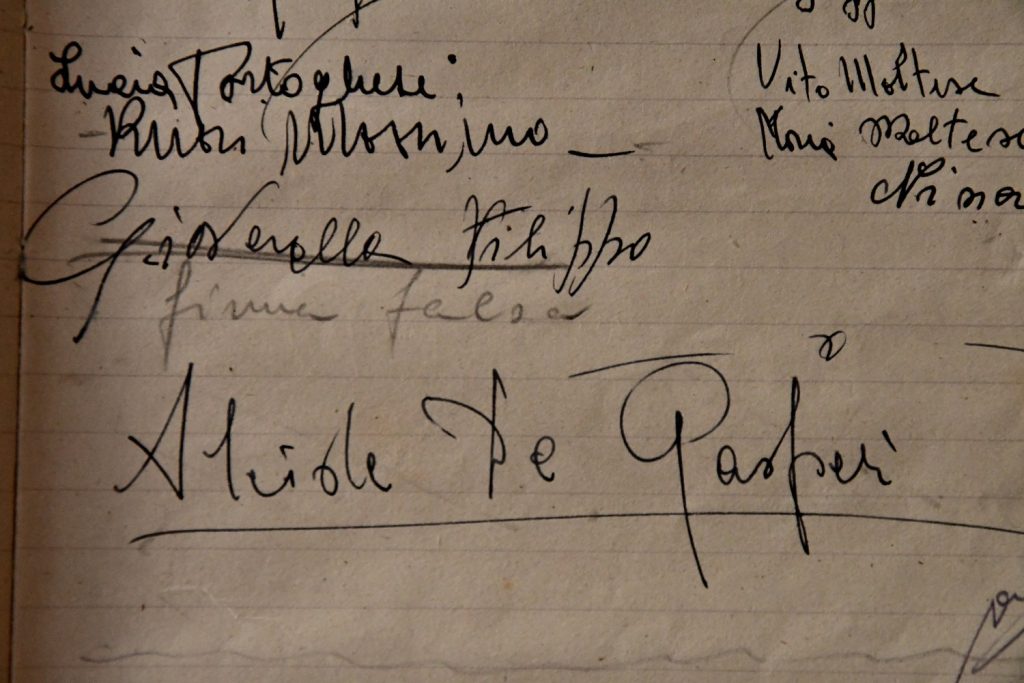 Lucia Portoghese;
Vito Maltese
Massimo
Maria Maltese
Nina
Filippo
firma falsa
Alcide De Gasperi